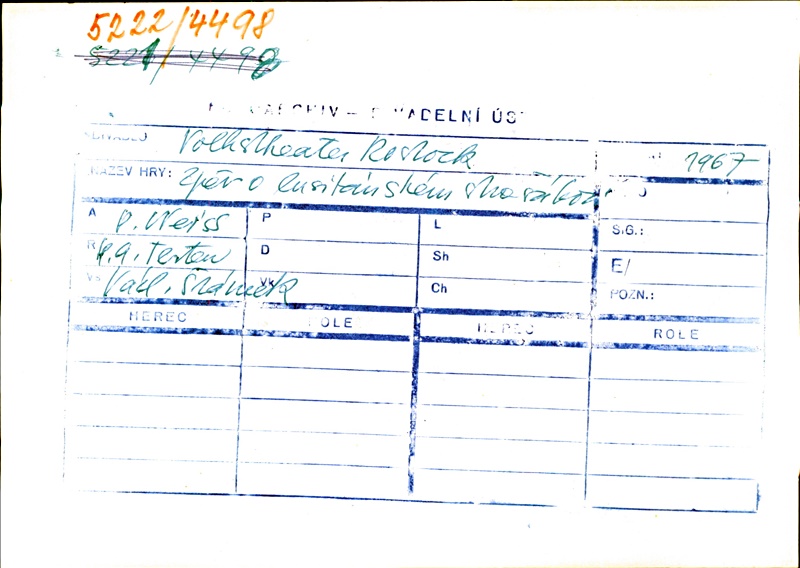 5222/4498
5221/4498
DIVADELNÍ ÚST
DIVADLO Volkstheater Rostock 1967
NÁZEV HRY: Zpěv o lusitánském strašákovi
A P. Weiss P L SIG.:
R H.A. Perten D Sh E/
Vs Václ. Šrámek Vk Ch POZN.:
HEREC ROLE HEREC ROLE